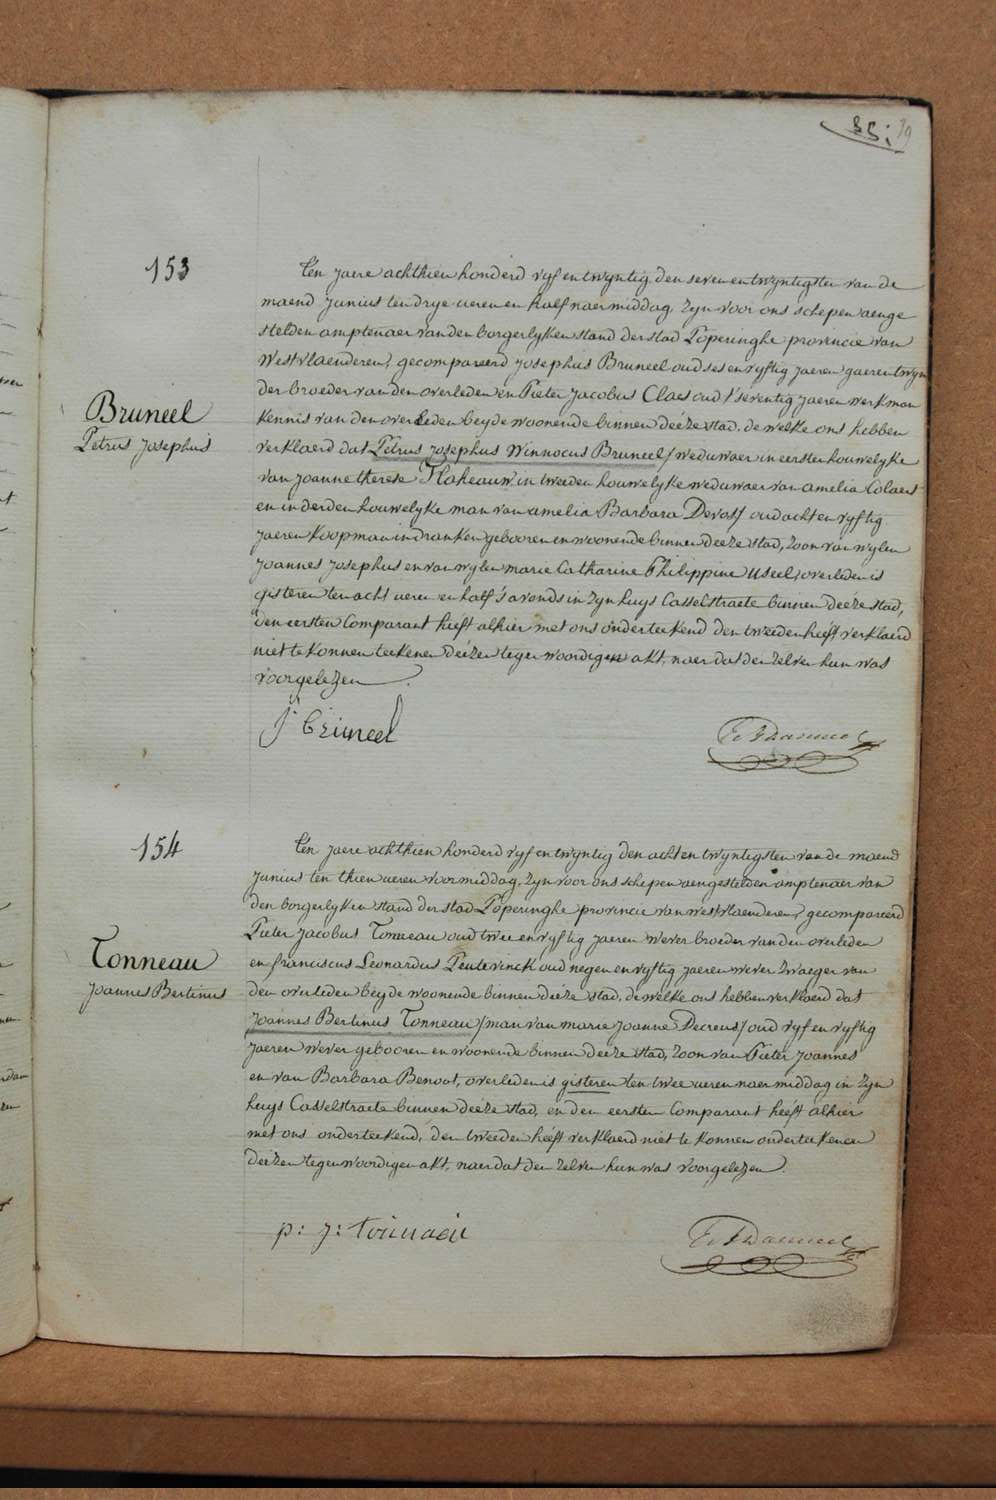 SS: 39
153
Bruneel
Petrus Josephus
Ten jaere achthien honderd vyf en twyntig den seven en twyntigsten van de
maend Junius ten drye ueren en half naermiddag, zyn voor ons schepen aenge
stelden amptenaer van den borgerlyken stand der stad Poperinghe provincie van
Westvlaenderen, gecompareerd Josephus Bruneel oud ses en vyftig jaeren
der broeder van den overleden en Pieter Jacobus Claes oud t'seventig jaeren werkman
kennis van den overleden beyde woonende binnen deéze stad, de welke ons hebben
verklaerd dat Petrus Josephus Winnocus Bruneel / weduwaer in eersten houwelyke
van Joanne therese Flaheauw in tweeden houwelyke weduwaer van amelia Colaert
en in derden houwelyke man van amelia Barbara Devos / oud acht en vyftig
jaeren koopman in dranken gebooren en woonende binnen deeze stad, zoon van wylen
Joannes Josephus en van wylen marie Catharine Philippine Useel, overleden is
gisteren ten acht ueren en half s'avonds in zyn huys Casselstraete binnen deéze stad,
den eersten Comparant heeft alhier met ons onderteekend den tweeden heéft verklaerd
niet te konnen teekenen deézen tegenwoordigen akt, naer dat den zelven hun was
voorgelezen.
J: bruneel
154
Tonneau
Joannes Bertinus
Ten jaere achthien honderd vyf en twyntig den acht en twyntigsten van de maend
Junius ten thien ueren voormiddag, zyn voor ons schepen aengestelden amptenaer van
den borgerlyken stand der stad Poperinghe provincie van westvlaenderen, gecompareerd
Pieter Jacobus Tonneau oud twee en vyftig jaeren wever broeder van den overleden
en franciscus Leonardus Peutevinck oud negen en vyftig jaeren wever zwaeger van
den overleden beyde woonende binnen deéze stad, de welke ons hebben verklaerd dat
Joannes Bertinus Tonneau / man van marie Joanne Decreus / oud vyf en vyftig
jaeren wever gebooren en woonende binnen deeze stad, zoon van Pieter Joannes
en van Barbara Benoot, overleden is gisteren ten twee ueren naermiddag in zyn
huys Casselstraete binnen deéze stad, en den eersten Comparant heéft alhier
met ons onderteekend, den tweeden heéft verklaerd niet te konnen onderteekenen
deézen tegenwoordigen akt, naer dat den zelven hun was voorgelezen.
p: j: tonneau